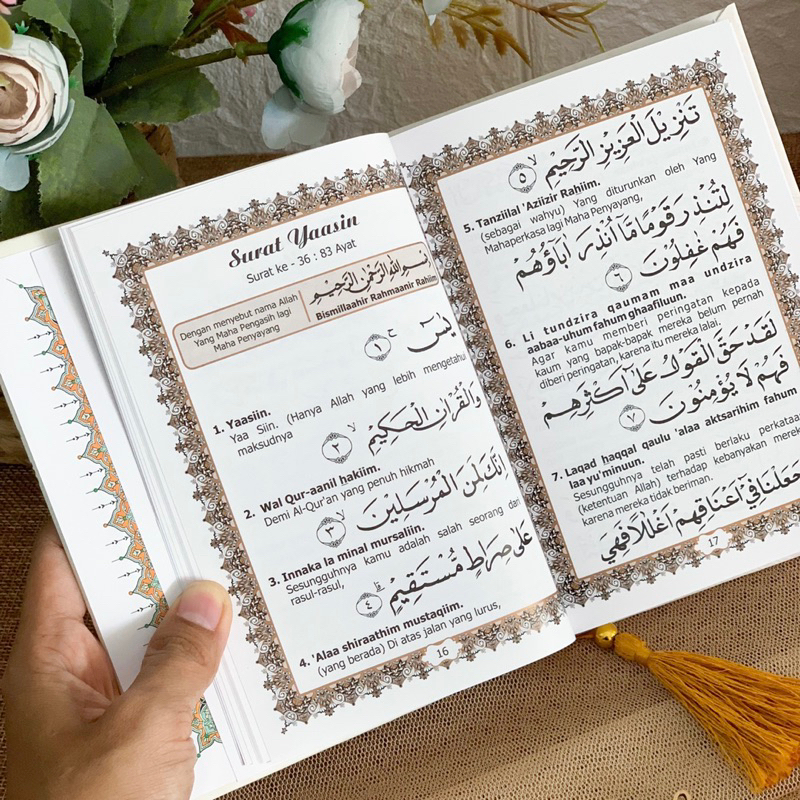 Surat Yaasin
Surat ke - 36 : 83 Ayat
Dengan menyebut nama Allah
Yang Maha Pengasih lagi
Maha Penyayang
بِسْمِ اللّٰهِ الرَّحْمٰنِ الرَّحِيْمِ
Bismillaahir Rahmaanir Rahiim
يٰسۤ ۚ ١
1. Yaasiin.
Yaa Siin. (Hanya Allah yang lebih mengetahu
maksudnya
وَالْقُرْاٰنِ الْحَكِيْمِۙ ٢
2. Wal Qur-aanil hakiim.
Demi Al-Qur'an yang penuh hikmah
اِنَّكَ لَمِنَ الْمُرْسَلِيْنَۙ ٣
3. Innaka la minal mursaliin.
Sesungguhnya kamu adalah salah seorang dar
rasul-rasul,
عَلٰى صِرَاطٍ مُّسْتَقِيْمٍۗ ٤
4. 'Alaa shiraathim mustaqiim.
(yang berada) Di atas jalan yang lurus,
16
تَنْزِيْلَ الْعَزِيْزِ الرَّحِيْمِۙ ٥
5. Tanziilal 'Aziizir Rahiim.
(sebagai wahyu) Yang diturunkan oleh Yang
Mahaperkasa lagi Maha Penyayang,
لِتُنْذِرَ قَوْمًا مَّآ اُنْذِرَ اٰبَاۤؤُهُمْ
فَهُمْ غٰفِلُوْنَ ٦
6. Li tundzira qaumam maa undzira
aabaa-uhum fahum ghaafiluun.
Agar kamu memberi peringatan kepada
kaum yang bapak-bapak mereka belum pernah
diberi peringatan, karena itu mereka lalai.
لَقَدْ حَقَّ الْقَوْلُ عَلٰٓى اَكْثَرِهِمْ
فَهُمْ لَا يُؤْمِنُوْنَ ٧
7. Laqad haqqal qaulu 'alaa aktsarihim fahum
laa yu'minuun.
Sesungguhnya telah pasti berlaku perkataa
(ketentuan Allah) terhadap kebanyakan merek
karena mereka tidak beriman.
جَعَلْنَا فِيْٓ اَعْنَاقِهِمْ اَغْلٰلًا فَهِيَ
17